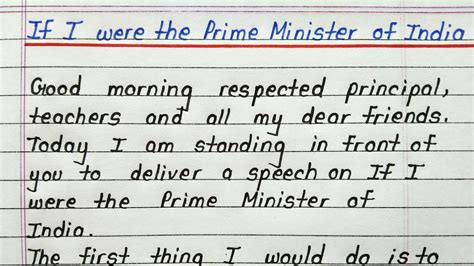 If I were the Prime Minister of India
Good morning respected principal,
teachers and all my dear friends.
Today I am standing in front of
you to deliver a speech on If I
were the Prime Minister of
India.
The first thing I would do is to